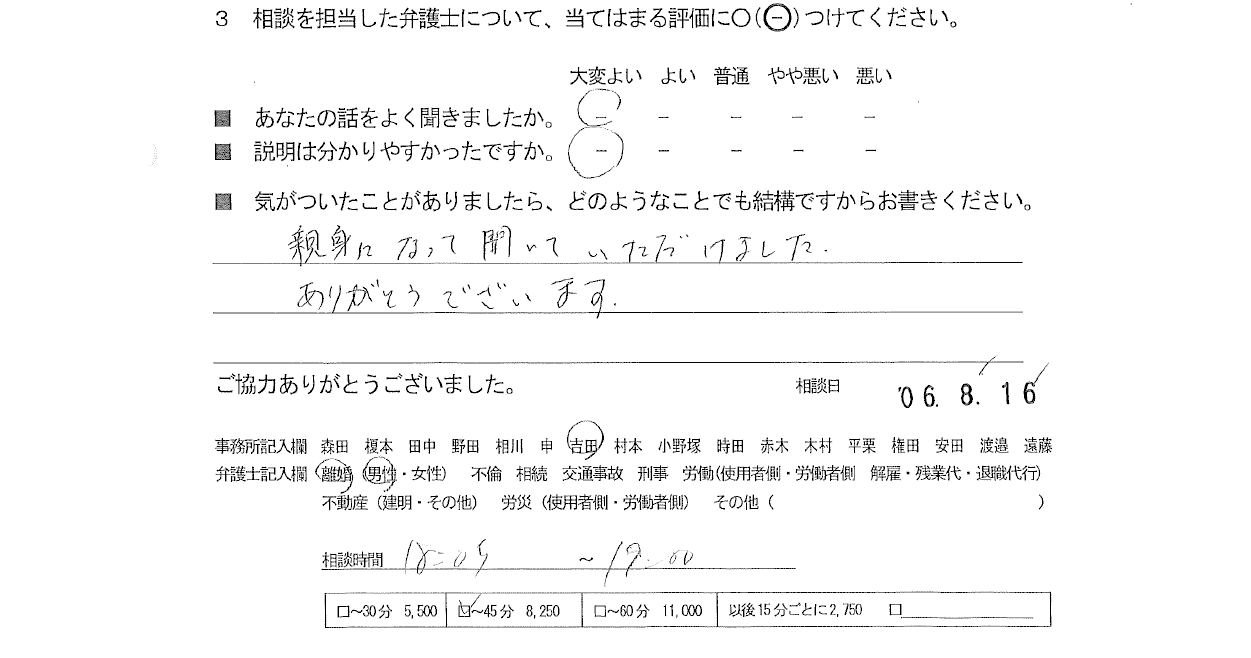 3 相談を担当した弁護士について、当てはまる評価に○(⊖)つけてください。
大変よい よい 普通 やや悪い 悪い
■ あなたの話をよく聞きましたか。 － － － － －
■ 説明は分かりやすかったですか。 － － － － －
■ 気がついたことがありましたら、どのようなことでも結構ですからお書きください。
親身になって聞いていただけました.
ありがとうございます.
ご協力ありがとうございました。 相談日 '06. 8. 16
事務所記入欄 森田 榎本 田中 野田 相川 申 吉田 村本 小野塚 時田 赤木 木村 平栗 権田 安田 渡邉 遠藤
弁護士記入欄 離婚 (男性・女性) 不倫 相続 交通事故 刑事 労働(使用者側・労働者側 解雇・残業代・退職代行)
不動産 (建明・その他) 労災 (使用者側・労働者側) その他 ( )
相談時間 18:05 ～ 19:00
□～30分 5,500 ☑～45分 8,250 □～60分 11,000 以後15分ごとに2,750 □